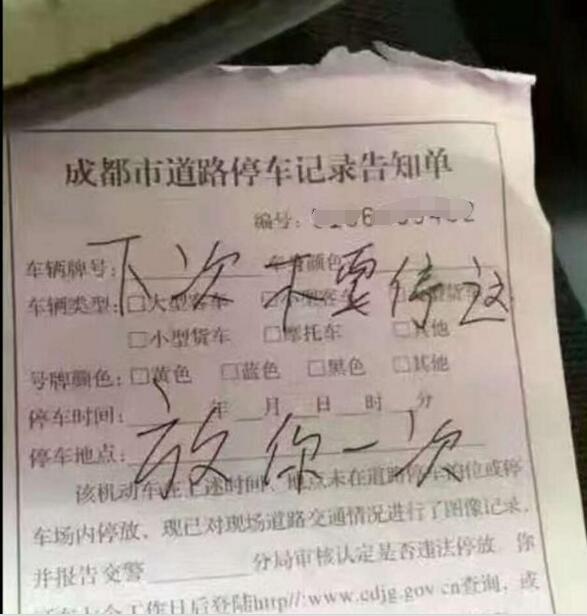 成都市道路停车记录告知单
编号:
车辆牌号: 车身颜色
下次不要停这
车辆类型: □大型客车 □小型客车 □大型货车
□小型货车 □摩托车 □其他
号牌颜色: □黄色 □蓝色 □黑色 □其他
停车时间: 年 月 日 时 分
放你一次
停车地点:
该机动车在上述时间、地点未在道路停车泊位或停
车场内停放,现已对现场道路交通情况进行了图像记录,
并报告交警 分局审核认定是否违法停放。你
个工作日后登陆http//:www.cdjg.gov cn查询,或